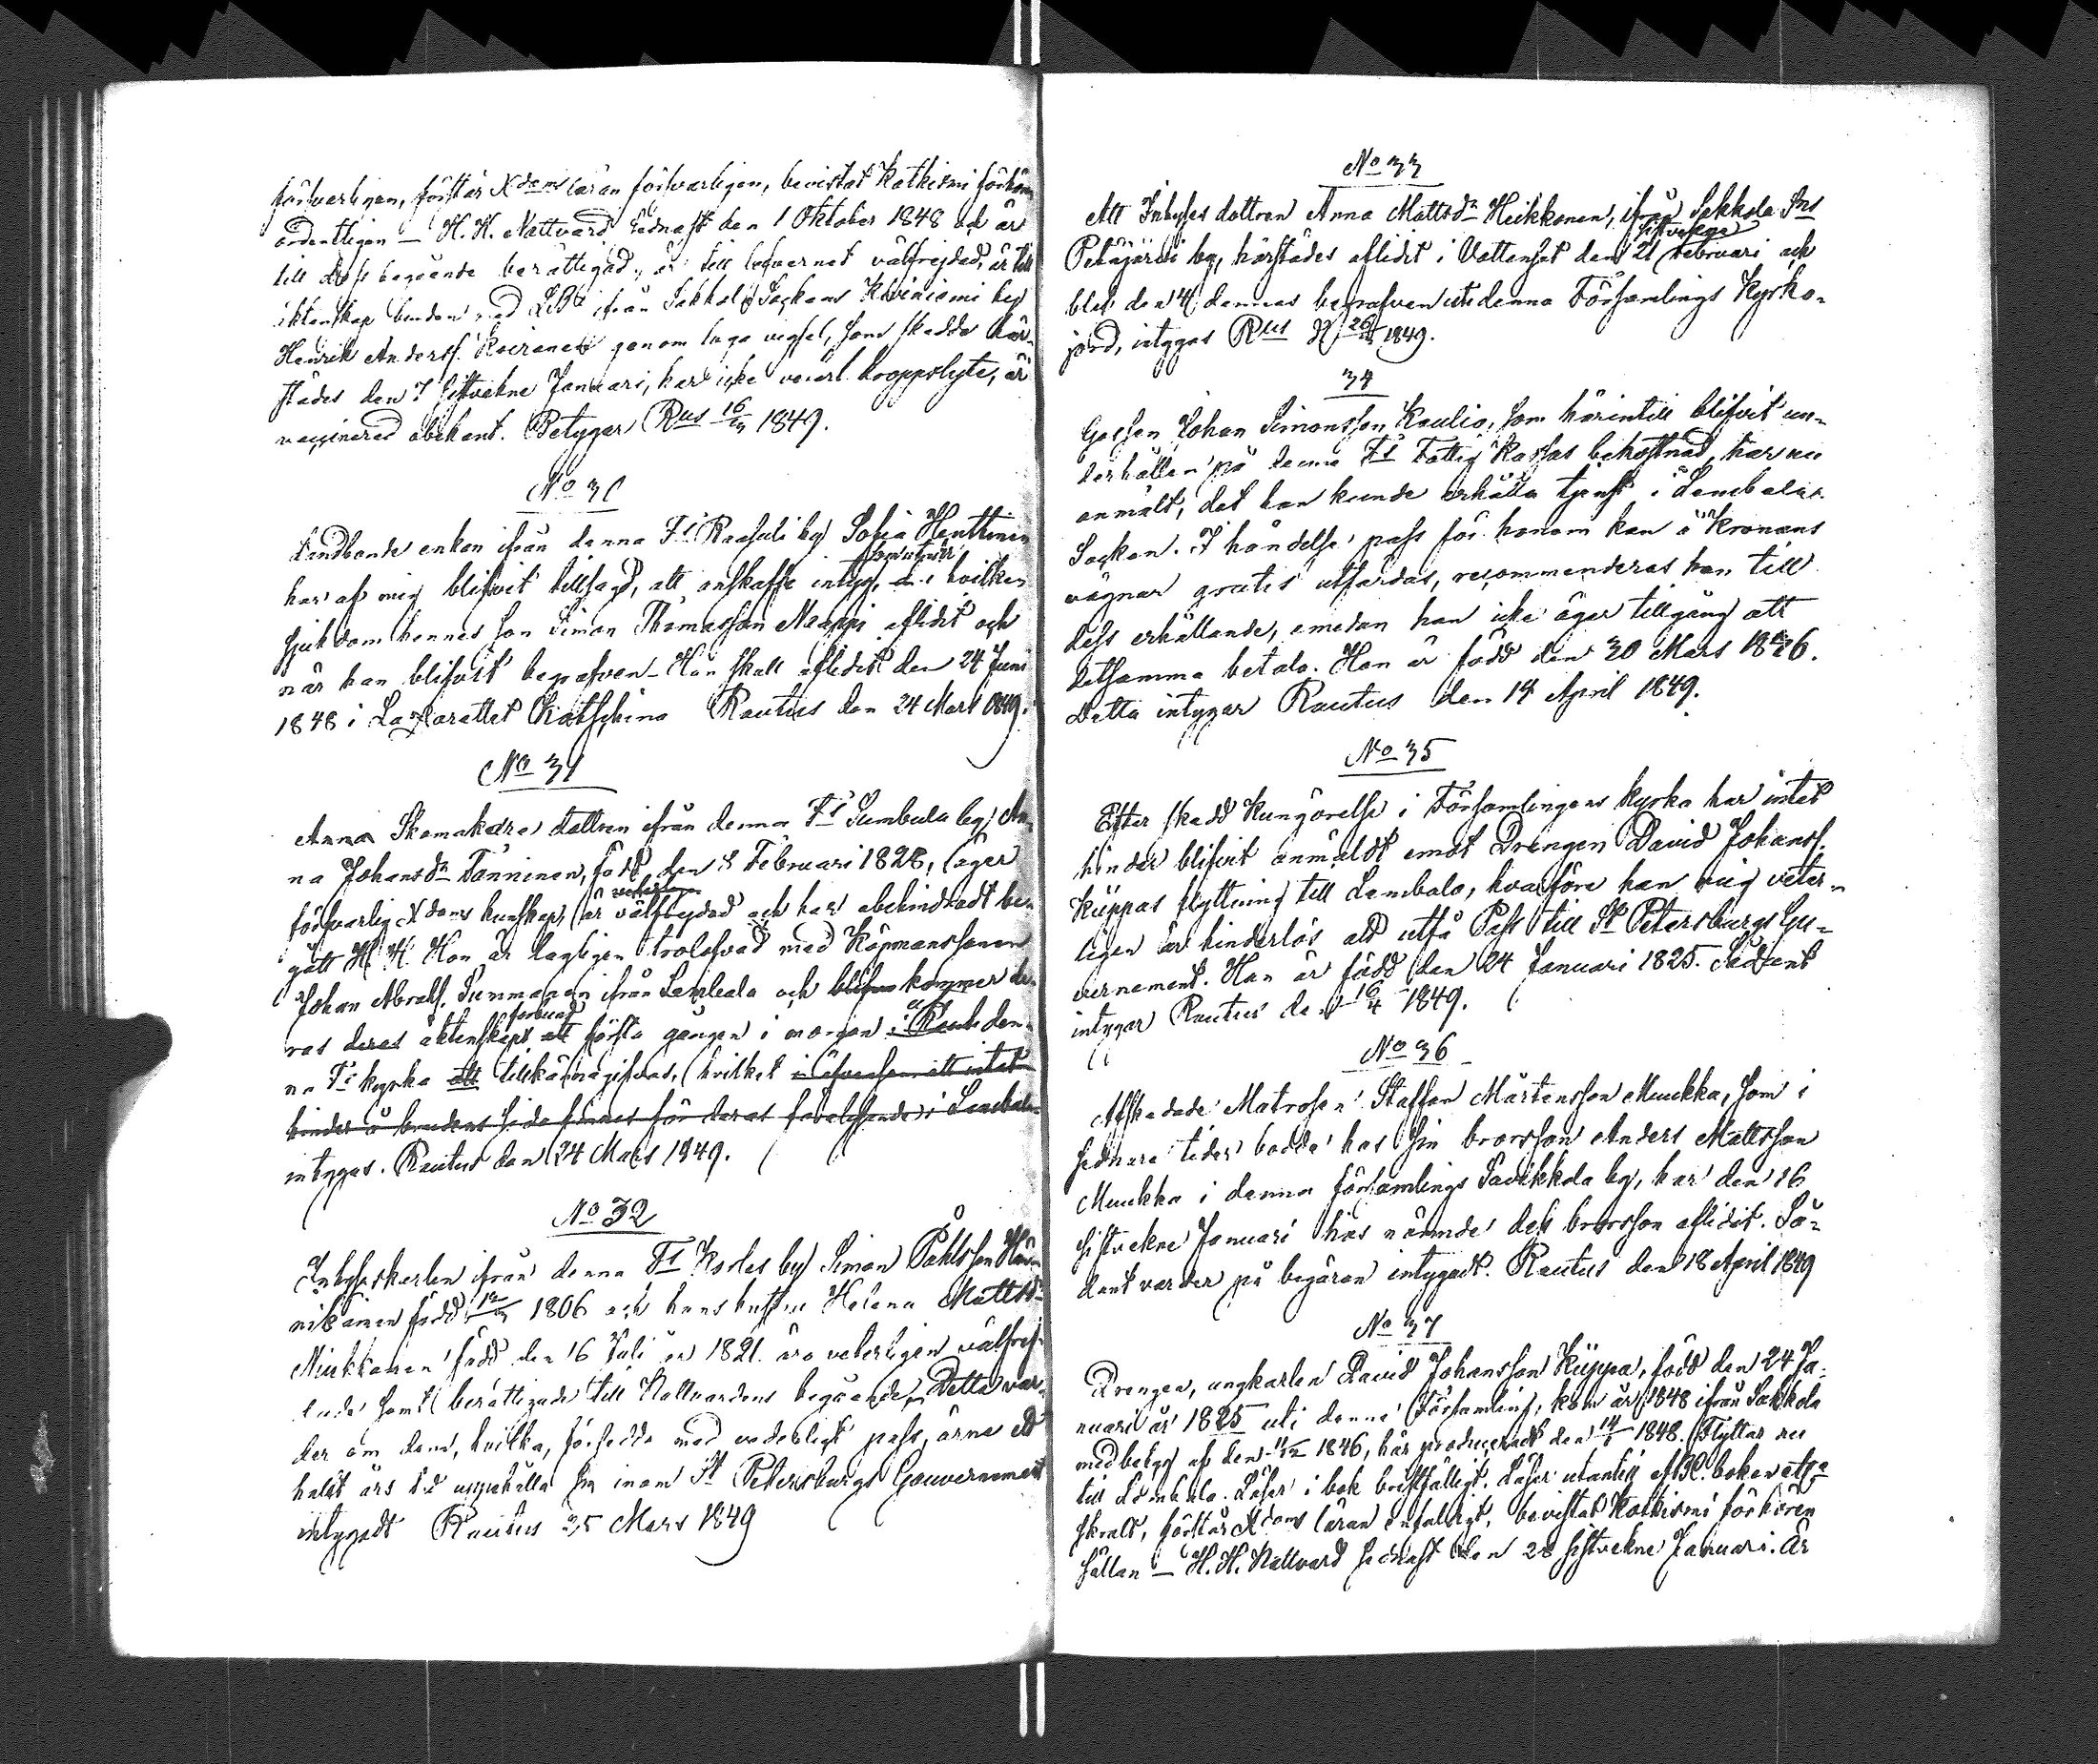 försvarligen, förstår Xdoms läran försvarligen, bevistat Katkismi förhören
ordentligen — H. H. Nattvard sednast den 1 Oktober 1848 och är
till dess begående berättigad, är till lefvernet välfrejdad, är till
äktenskap bunden med ifrån Sakkola Sockens Kiviniemi by
Henrik Anderss. Koiranen genom laga vigsel, som skedde här-
städes den 7 sistvekne Januari, har icke veterl. kroppslyte, är
vaccinered obekant. Betygar Rus 16/3 1849.
No 30
Landbonde enkan ifrån denna Fs Raasuli by Sofia Henttinen
har af mig blifvit tillsagd, att anskaffa intyg, i hvilken
sjukdom hennes son Simon Thomasson Naappi aflidit och
när han blifvit begrafven. Han skall aflidit den 24 Juni
1848 i Lazarettet Katschina Rautus den 24 Mars 1849.
No 31
Anna Skomakare dottren ifrån denna Fs Sumbula by, An-
na Johansdr Tanninen, född den 8 Februari 1828, äger
försvarlig Xdoms kunskap, är veterligen välfrejdad och har obehindradt be-
gått H. H. Hon är lagligen trolofvad med Köpmanssonen
Johan Abrahs. Summanen ifrån Lembala och blifva kommer de-
ras deras äktenskaps förbund att första gången i morgon i denna
na Fs kyrka att tillkännagifvas, hvilket
hinder å brudens sida finnes för deras i Lembala
intygas. Rautus den 24 Mars 1849.
No 32
Inhyseskarlen ifrån denna Fs Korles by Simon Påhlsson Hän-
nikäinen född 12/3 1806 och hans hustru Helena Mattsdr
Miukkonen född den 16 Juli år 1821. äro veterligen välfrej-
dade samt berättigade till Nattvardens begående, Detta var-
der om dem, hvilka, försedde med vederligt pass, ärna ett
halft års tid uppehålla sig inom St Petersburgs Gouvernement
intygadt Rautus 25 Mars 1849
No 33
Att Inhyses dottren Anna Mattsdr Heikkonen, ifrån Sakkola Sns
Petäjärvi by, härstädes aflidit i Vattensot den 21 sistvekne Februari och
blef den 4 dennas begrafven uti denna Församlings Kyrko-
jord, intygas Rus d 26/3 1849.
34
Gossen Johan Simonsson Kaulio, som härintill blifvit un-
derhållen på denna Fs Fattig Kassas bekostnad, har nu
anmält, det han kunde erhålla tjenst i Lembala
Socken. I händelse pass för honom kan å Kronans
vägnar gratis utfärdas, recommenderas han till
dess erhållande, emedan han icke äger tillgång att
detsamma betala. Han är född den 30 Mars 1826.
Detta intygar Rautus den 14 April 1849.
No 35
Efter skedd kungörelse i Församlingens kyrka har intet
hinder blifvit anmäldt emot Drengen David Johanss.
Küppas flyttning till Lembala, hvarföre han mig veter-
ligen är hinderlös att utfå Pass till St Petersburgs Gu-
vernement. Han är född den 24 Januari 1825. Sådant
intygar Rautus den 16/4 1849.
No 36
Afskedade Matrosen Staffan Mårtensson Muukka, som i
sednare tider bodde hos sin brorsson Anders Mattsson
Muukka i denna församlings Savikkola by, har den 16
sistvekne Januari hos nämnde dess brorsson aflidit. Så-
dant varder på begäran intygadt. Rautus den 18 April 1849
No 37
Drengen, ungkarlen David Johansson Küppa, född den 24 Ja-
nuari år 1825 uti denna Församling, kom år 1848 ifrån Sakkola
med betyg af den 1846, här produceradt den 14/1 1848. Flyttar nu
till Lembala. Läser i bok bristfälligt. Läser utantill Abc. boken otya
skralt, förstår Xdoms läran enfaldigt, bevistat Katkismi förhören
sällan — H. H. Nattvard sednast den 28 sistvekne Januari. Är